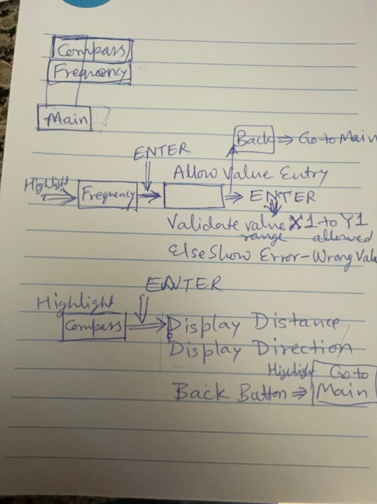 Compass
Frequency
Main
Back ⇒ Go to Main
ENTER
Allow Value Entry
Highlight
Frequency ⇒ ⇒ ENTER
Validate value X1 to Y1
range allowed
Else Show Error-Wrong Val
ENTER
Highlight
Compass ⇒ Display Distance
Display Direction
Highlight Go to
Back Button ⇒ Main